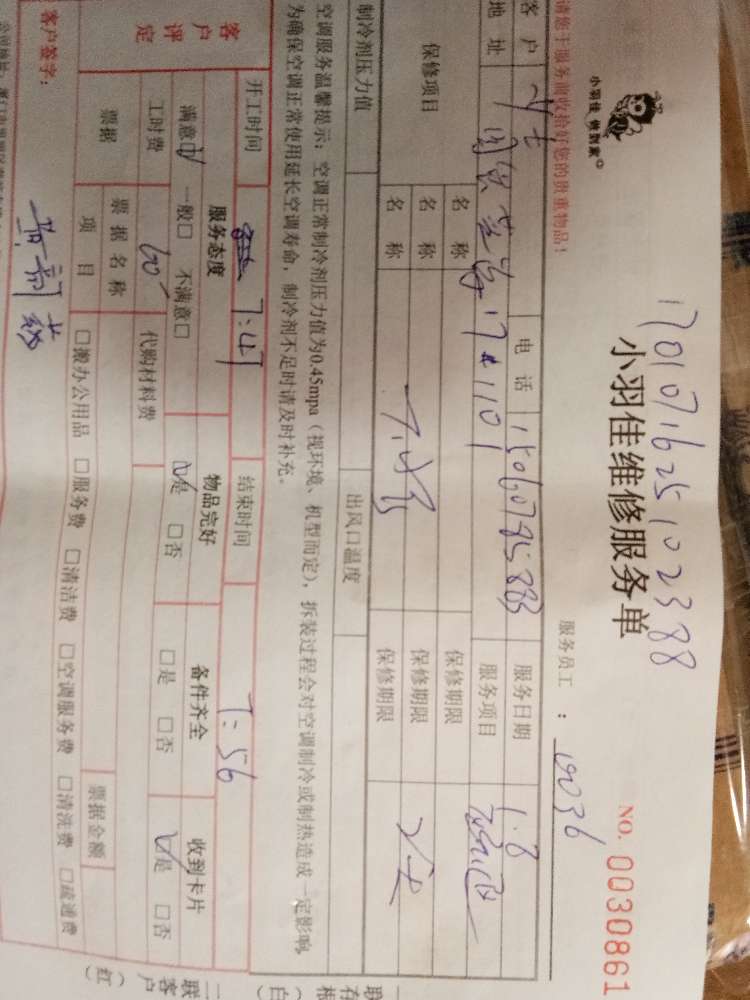 1701071625102388
小羽佳 做到家
小羽佳维修服务单
NO. 0030861
服务员工 : 10036
请您于服务前收拾好您的贵重物品!
客 户 电 话 15060785883 服务日期 1.8
地 址 17#1101 服务项目
保修项目
名 称 保修期限
名 称 保修期限
名 称 保修期限
制冷剂压力值 出风口温度
空调服务温馨提示:空调正常制冷剂压力值为0.45mpa(视环境、机型而定),拆装过程会对空调制冷或制热造成一定影响,
为确保空调正常使用延长空调寿命,制冷剂不足时请及时补充。
开工时间 7:47 结束时间 7:56
客户评定
服务态度 物品完好 备件齐全 收到卡片
满意☑ 一般□ 不满意□ ☑是 □否 □是 □否 ☑是 □否
工时费 60 代购材料费
票据 票 据 名 称 票据金额
项 目 □搬办公用品 □服务费 □清洁费 □空调服务费 □清洗费 □疏通费
客户签字:
一联存根(白)
二联客户(红)